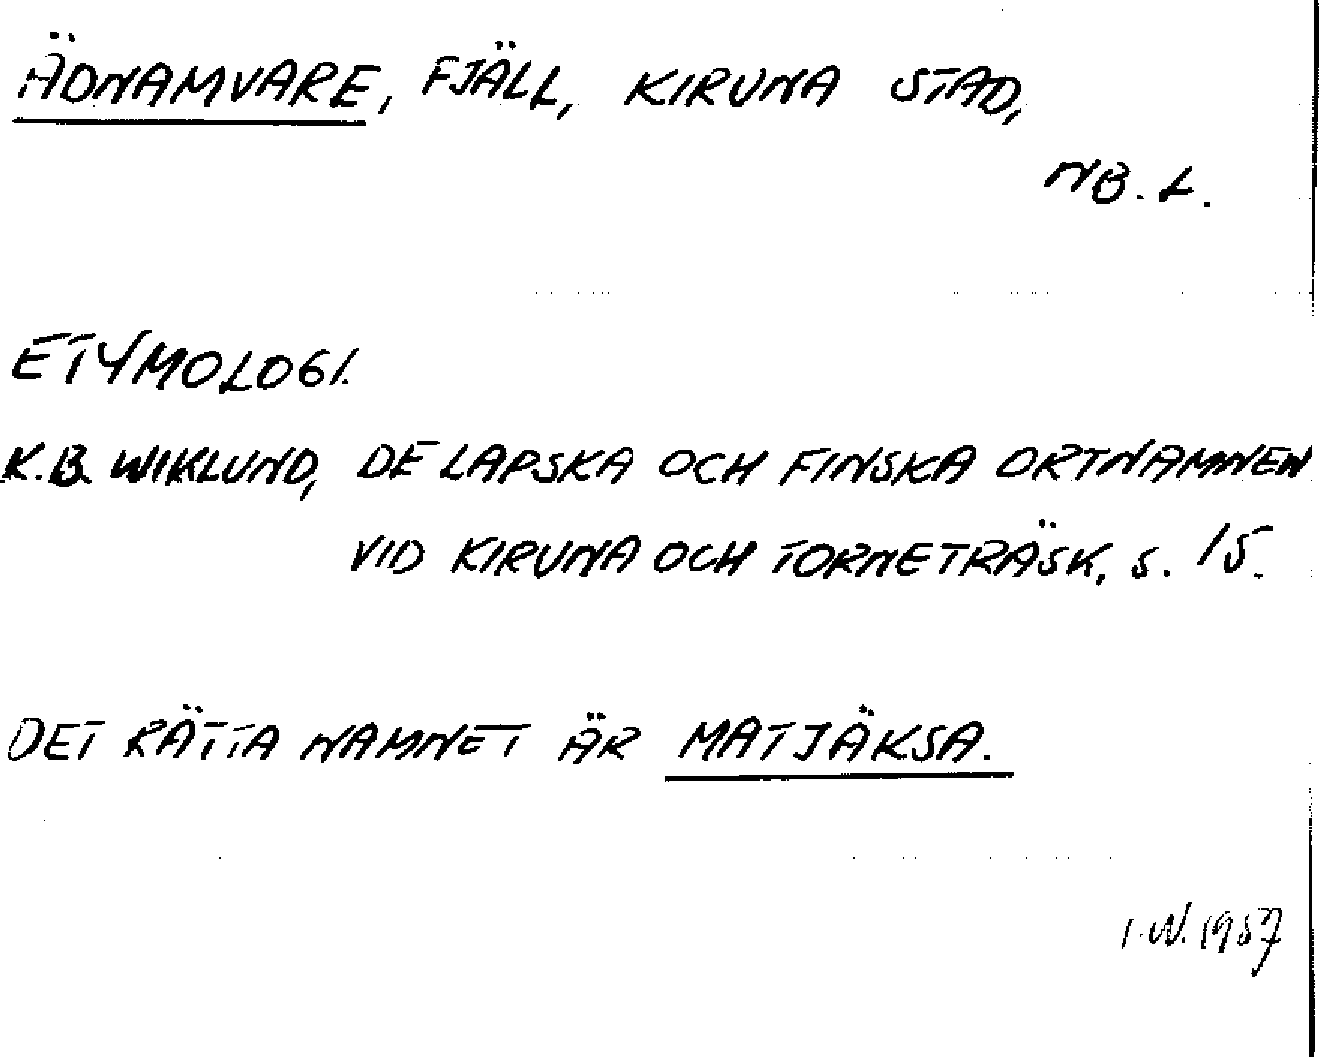 ÄDNAMVARE, FJÄLL, KIRUNA STAD,
NB. L.
ETYMOLOGI.
K.B. WIKLUND, DE LAPSKA OCH FINSKA ORTNAMNEN
VID KIRUNA OCH TORNETRÄSK, S. 15.
DET RÄTTA NAMNET ÄR MATJÄKSA.
I.W. 1957